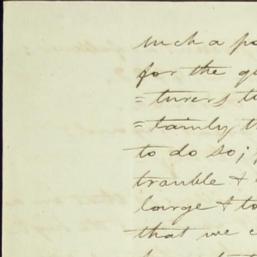 such a po
for the qu
=turers to
=tainly th
to do so;
trouble +
large + to
that we c